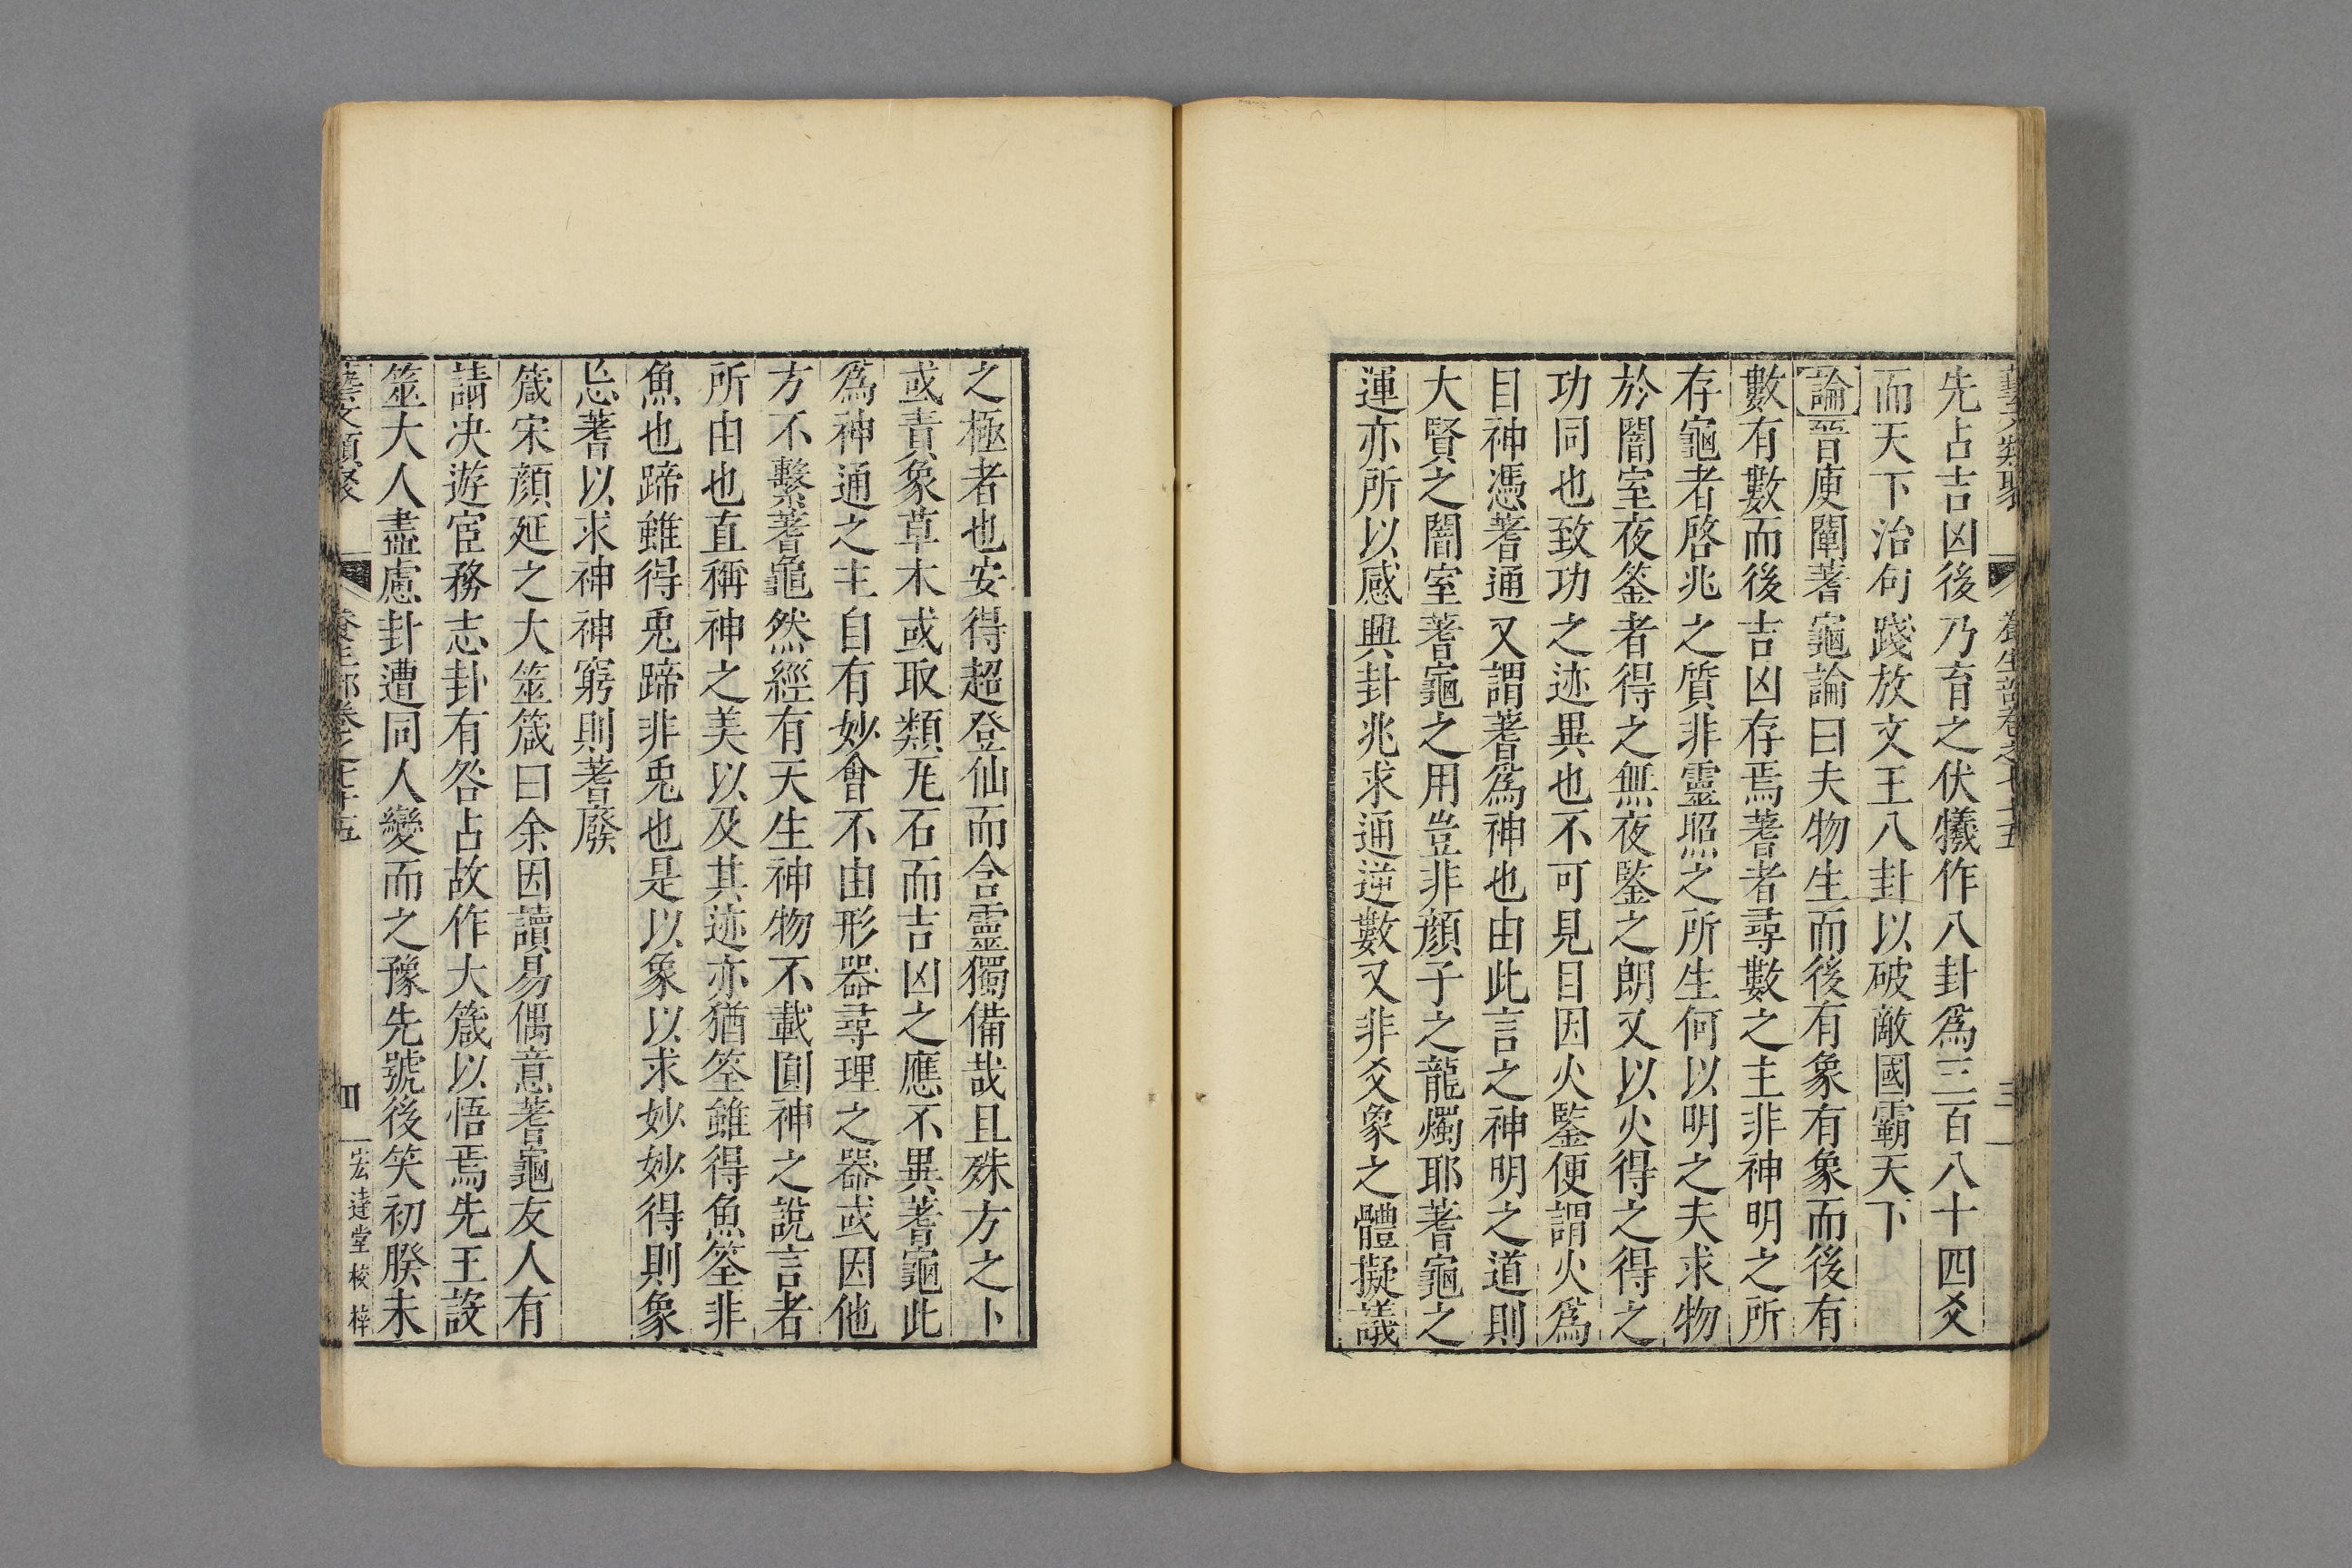 藝文類聚 養生部卷之七十五 三
先占吉凶後乃育之伏犧作八卦爲三百八十四爻
而天下治句踐放文王八卦以破敵國霸天下
論晉庾闡蓍龜論曰夫物生而後有象有象而後有
數有數而後吉凶存焉蓍者尋數之主非神明之所
存龜者啓兆之質非靈照之所生何以明之夫求物
於闇室夜鍳者得之無夜鍳之朗又以火得之得之
功同也致功之迹異也不可見目因火鍳便謂火爲
目神憑蓍通又謂蓍爲神也由此言之神明之道則
大賢之闇室蓍龜之用豈非顏子之龍燭耶蓍龜之
運亦所以感興卦兆求通逆數又非爻象之體擬議
之極者也安得超登仙而含靈獨備哉且殊方之卜
或責象草木或取類瓦石而吉凶之應不異蓍龜此
爲神通之主自有妙會不由形器尋理之器或因他
方不繫蓍龜然經有天生神物不載圓神之說言者
所由也直稱神之美以及其迹亦猶筌雖得魚筌非
魚也蹄雖得兎蹄非兎也是以象以求妙妙得則象
忘蓍以求神神窮則蓍廢
箴宋顏延之大筮箴曰余因讀易偶意蓍龜友人有
請决遊宦務志卦有咎占故作大箴以悟焉先王設
筮大人盡慮卦遭同人變而之豫先號後笑初睽未
藝文類聚 養生部卷之七十五 四 宏達堂校梓